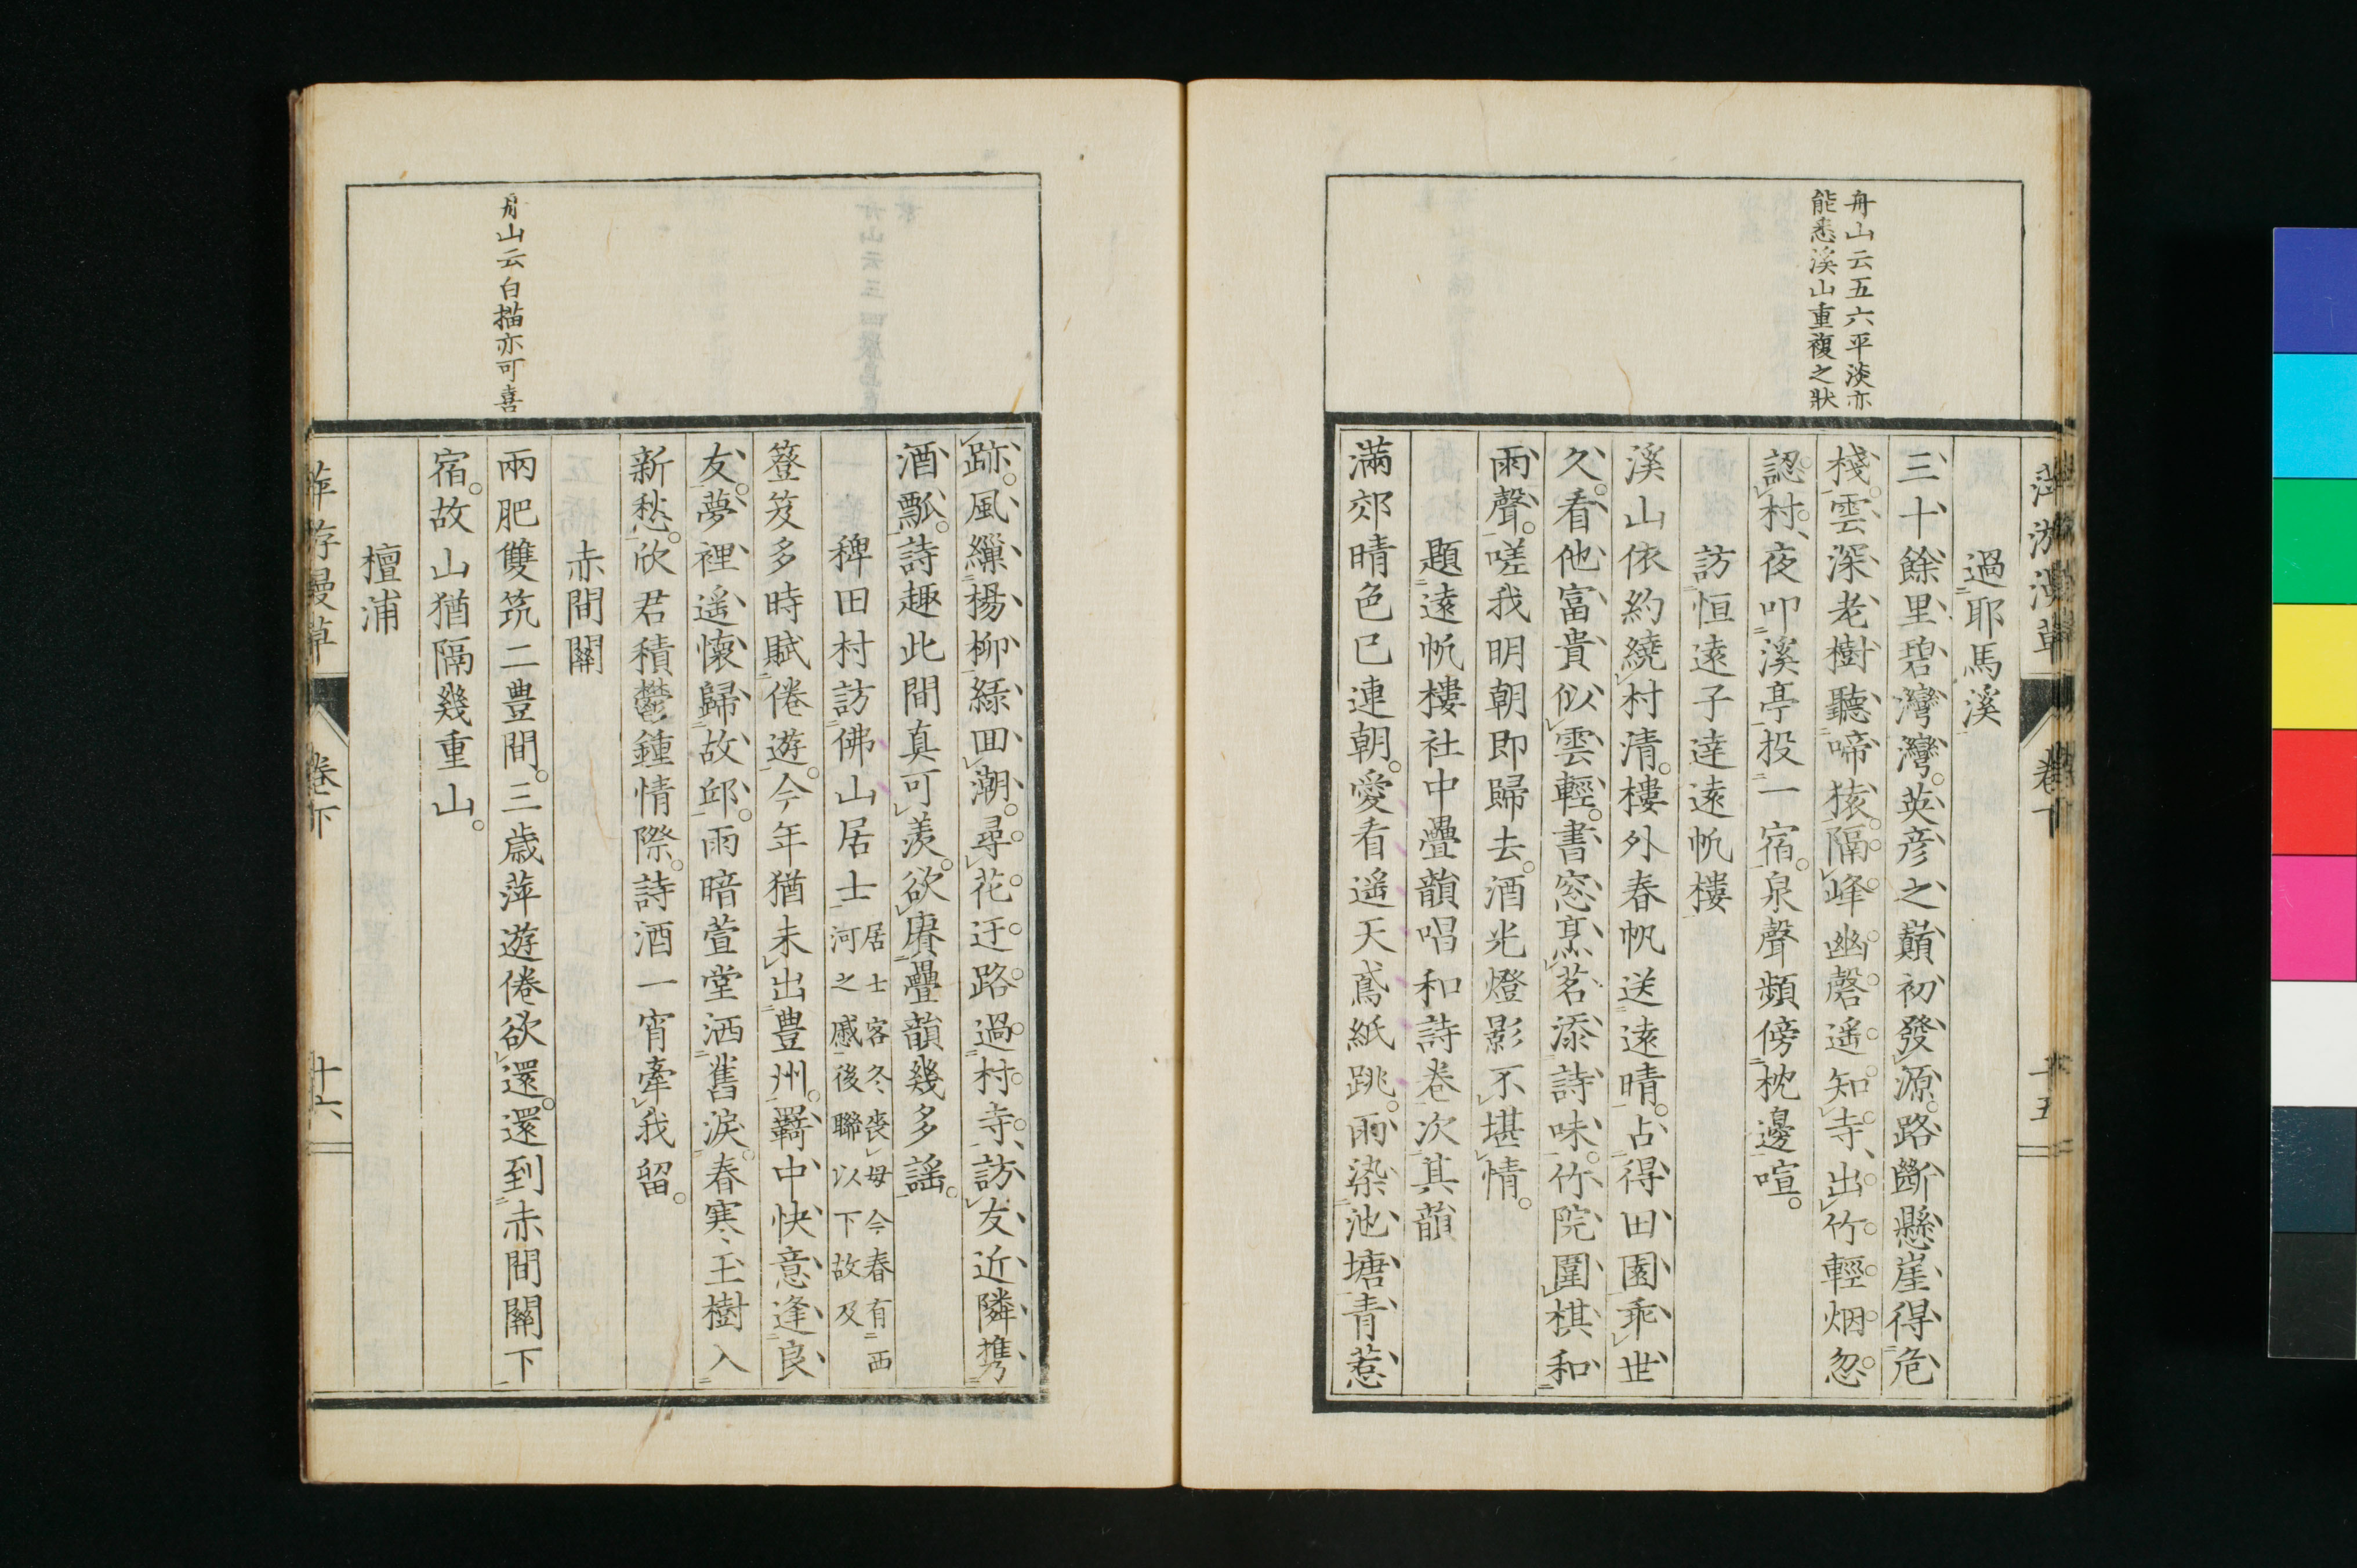 舟山云五六平淡亦
能悉溪山重複之狀
過耶馬溪
三十餘里碧灣灣英彦之巓初發源路斷懸崖得危
棧雲深老樹聽啼猿隔峰幽磬遥知寺出竹輕烟忽
認村夜叩溪亭投一宿泉聲頻傍枕邊喧
訪恒遠子達遠帆樓
溪山依約繞村清樓外春帆送遠晴占得田園乖世
久看他富貴似雲輕書窓烹茗添詩味竹院圍棋和
雨聲嗟我明朝即歸去酒光燈影不堪情
題遠帆樓社中疊韻唱和詩卷次其韻
滿郊晴色已連朝愛看遥天鳶紙跳雨染池塘青惹
萍游漫草 卷下 十五
舟山云白描亦可喜
跡風繅楊柳緑回潮尋花迂路過村寺訪友近隣携
酒瓢詩趣此間真可羨欲賡疊韻幾多謡
稗田村訪佛山居士
居士客冬喪母今春有西
河之慼後聯以下故及
簦笈多時賦倦遊今年猶未出豊州羇中快意逢良
友夢裡遥懷歸故邱雨暗萱堂洒舊淚春寒玉樹入
新愁欣君積鬱鍾情際詩酒一宵牽我留
赤間關
兩肥雙筑二豊間三歳萍遊倦欲還還到赤間關下
宿故山猶隔幾重山
檀浦
萍游漫草 卷下 十六